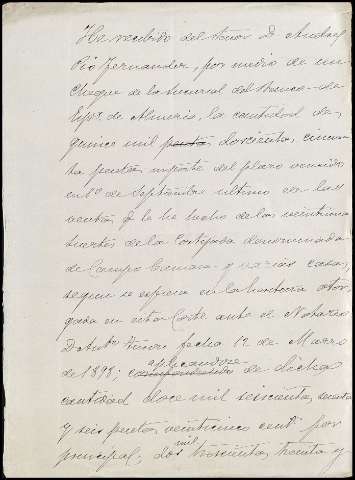 He recibido del Señor D Andres
Rio Fernandez, por medio de un
Cheque de la Sucursal del Banco de
Espª de Almeria, la cantidad de
quince mil peseta doscientas cincuen
ta pesetas importe del plazo vencido
en 1º de Septiembre último en las
venta q le he hecho de las veintinueve
suertes de la Cortijada denominada
de Campo y varias casas,
segun se espresa en la escritura otor
gada en esta Corte ante el Notario
D Antº fecha 12 de Marzo
de 1898; correspondiendo aplicandose de dicha
cantidad doce mil seiscientas sesenta
y seis pesetas veinticinco centº por
principal; dos mil trescientas treinta y